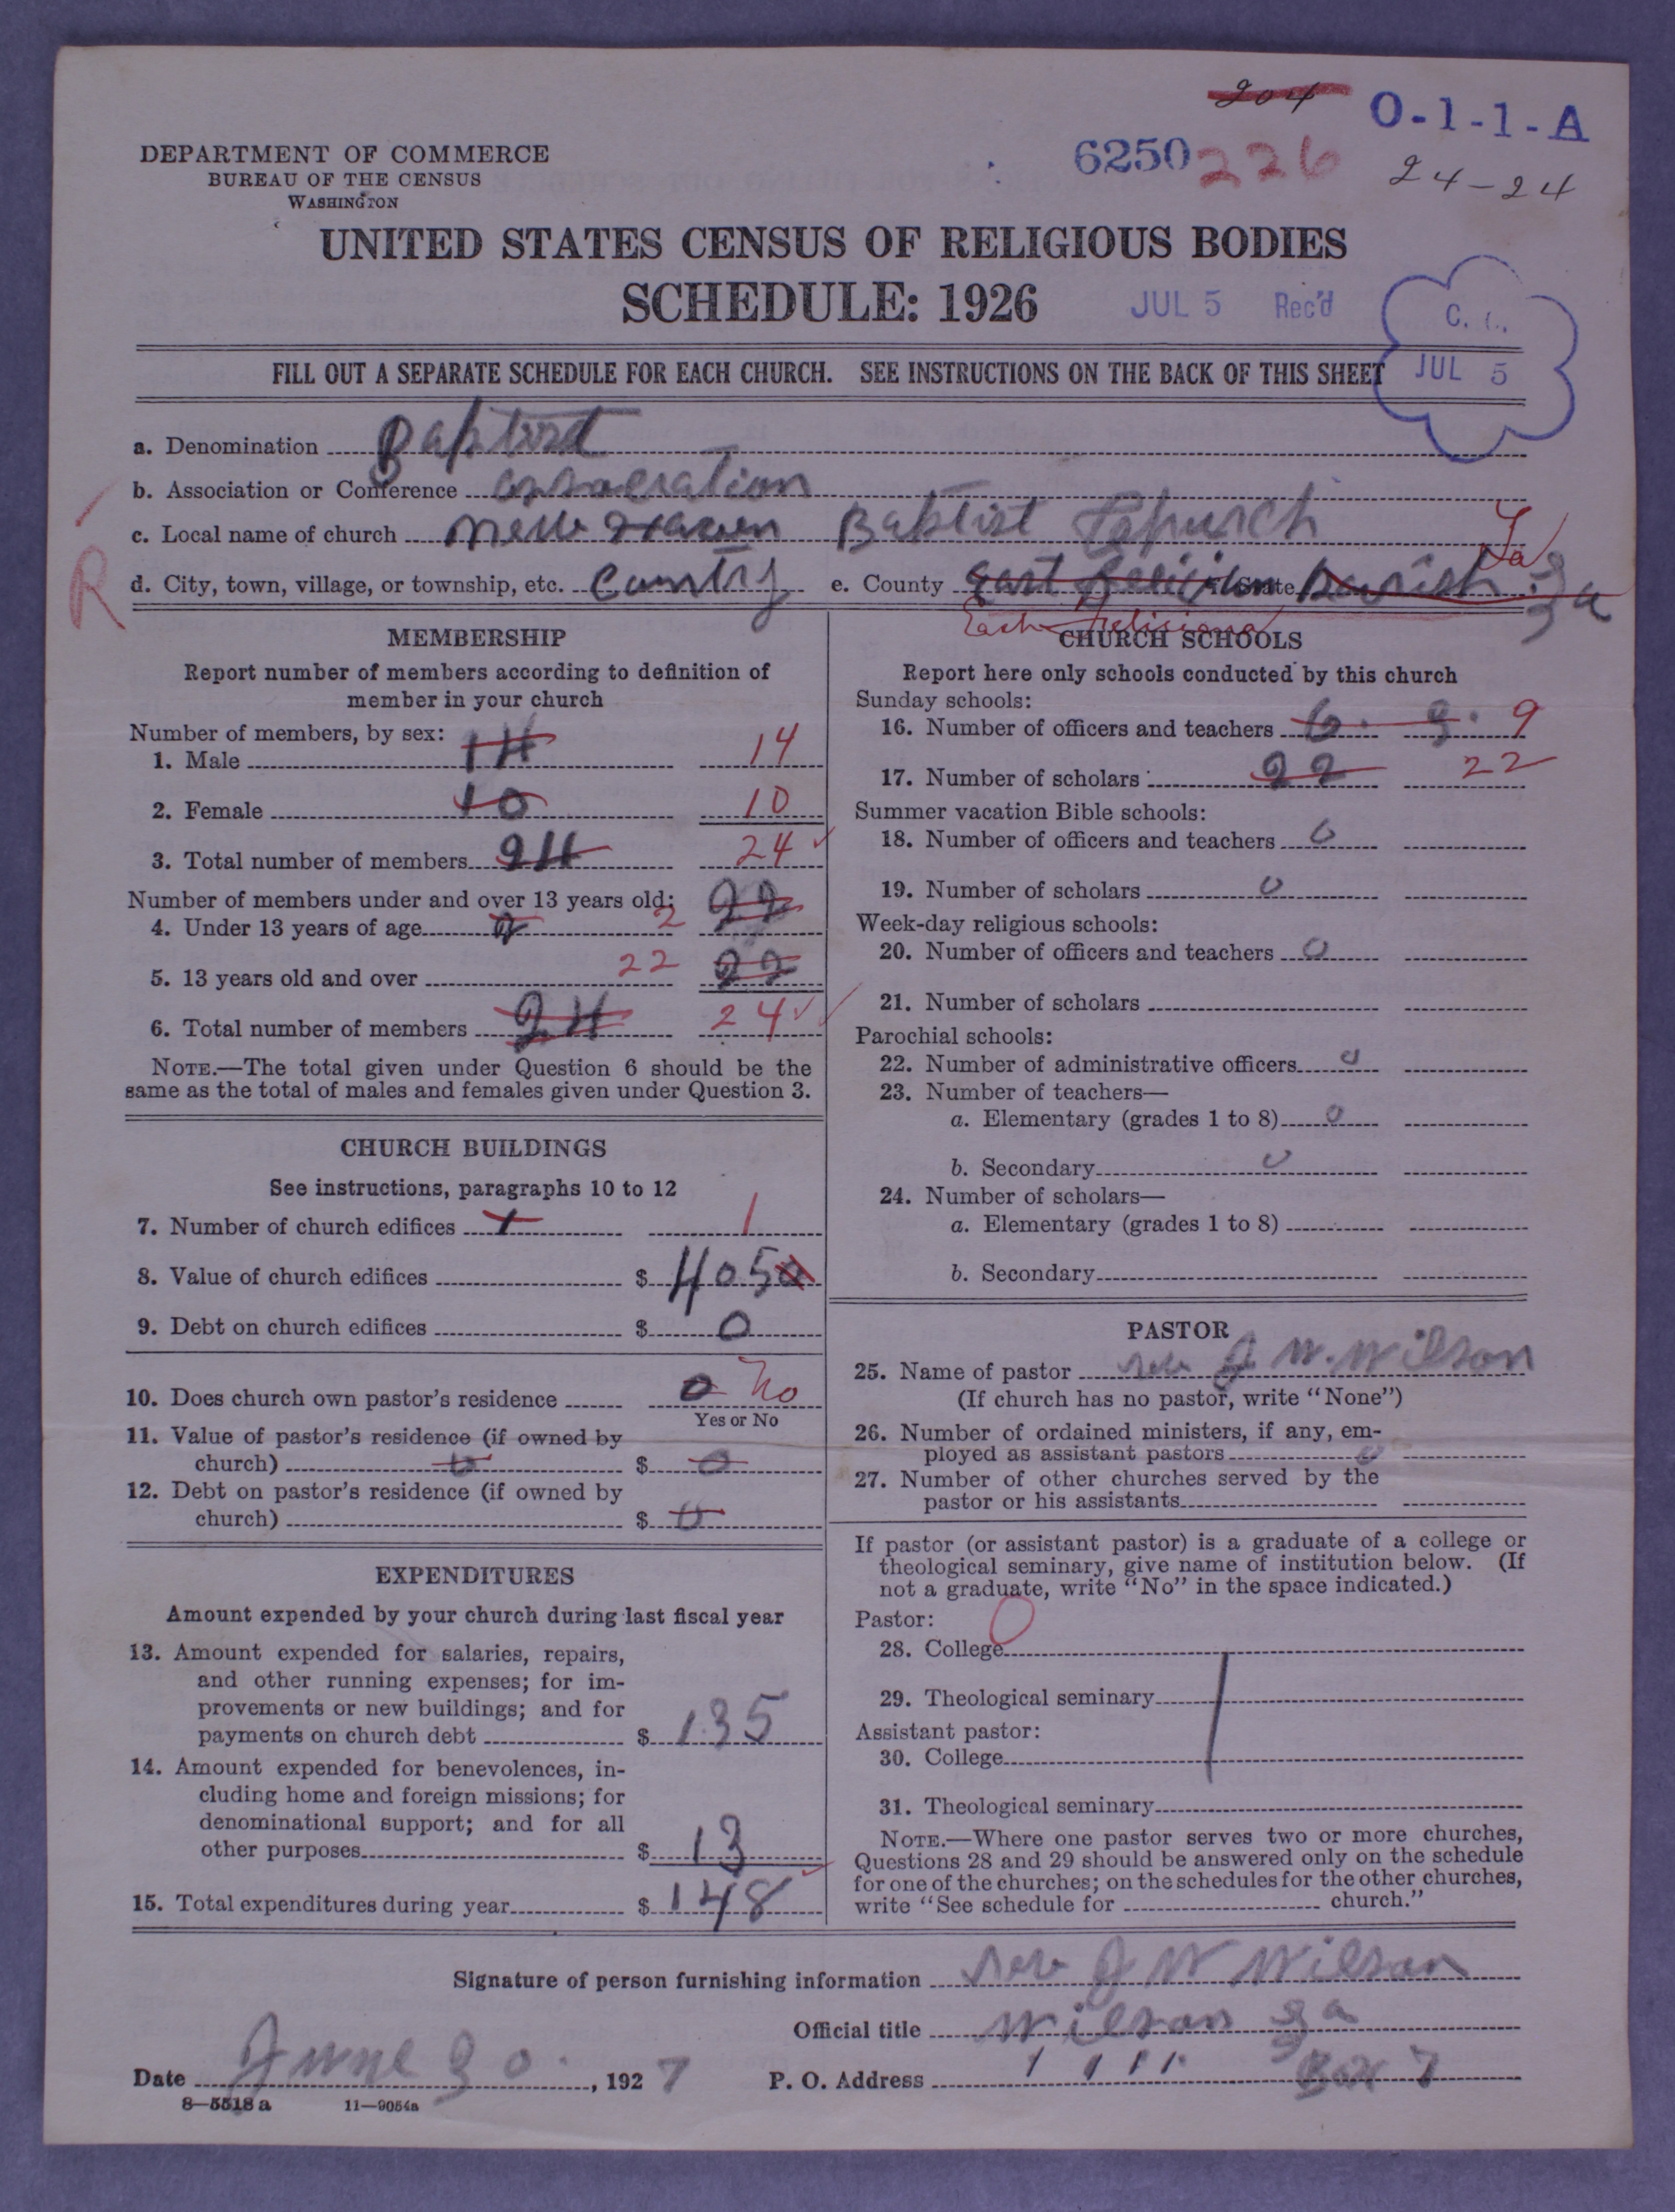 204
O-1-1-A
DEPARTMENT OF COMMERCE
BUREAU OF THE CENSUS
WASHINGTON
6250 226
24-24
UNITED STATES CENSUS OF RELIGIOUS BODIES
SCHEDULE: 1926
JUL 5 Rec'd
C.
JUL 5
FILL OUT A SEPARATE SCHEDULE FOR EACH CHURCH. SEE INSTRUCTIONS ON THE BACK OF THIS SHEET
a. Denomination Baptist
b. Association or Conference
c. Local name of church New Haven Baptist Church
La
d. City, town, village, or township, etc. Country e. County East State Parish
R
East Feliciana
MEMBERSHIP
Report number of members according to definition of
member in your church
Number of members, by sex:
1. Male 14 14
2. Female 10 10
3. Total number of members 24 24
Number of members under and over 13 years old: 22
4. Under 13 years of age 2 2
5. 13 years old and over 22 22
6. Total number of members 24 24
NOTE.—The total given under Question 6 should be the
same as the total of males and females given under Question 3.
CHURCH BUILDINGS
See instructions, paragraphs 10 to 12
7. Number of church edifices 1 1
8. Value of church edifices $ 4050
9. Debt on church edifices $ 0
10. Does church own pastor's residence 0 No
Yes or No
11. Value of pastor's residence (if owned by
church) 0 $ 0
12. Debt on pastor's residence (if owned by
church) $ 0
EXPENDITURES
Amount expended by your church during last fiscal year
13. Amount expended for salaries, repairs,
and other running expenses; for im-
provements or new buildings; and for
payments on church debt $ 135
14. Amount expended for benevolences, in-
cluding home and foreign missions; for
denominational support; and for all
other purposes $ 13
15. Total expenditures during year $ 148
CHURCH SCHOOLS
Report here only schools conducted by this church
Sunday schools:
16. Number of officers and teachers 6 9 9
17. Number of scholars 22 22
Summer vacation Bible schools:
18. Number of officers and teachers 0
19. Number of scholars 0
Week-day religious schools:
20. Number of officers and teachers 0
21. Number of scholars
Parochial schools:
22. Number of administrative officers 0
23. Number of teachers—
a. Elementary (grades 1 to 8) 0
b. Secondary 0
24. Number of scholars—
a. Elementary (grades 1 to 8)
b. Secondary
PASTOR
25. Name of pastor Rev J W. Wilson
(If church has no pastor, write "None")
26. Number of ordained ministers, if any, em-
ployed as assistant pastors 0
27. Number of other churches served by the
pastor or his assistants
If pastor (or assistant pastor) is a graduate of a college or
theological seminary, give name of institution below. (If
not a graduate, write "No" in the space indicated.)
Pastor:
28. College
29. Theological seminary
Assistant pastor:
30. College
31. Theological seminary
NOTE.—Where one pastor serves two or more churches,
Questions 28 and 29 should be answered only on the schedule
for one of the churches; on the schedules for the other churches,
write "See schedule for church."
Signature of person furnishing information Rev J W Wilson
Official title Wilson
Date June 30, 1927 P. O. Address Box 7
8—5518 a 11—9054a